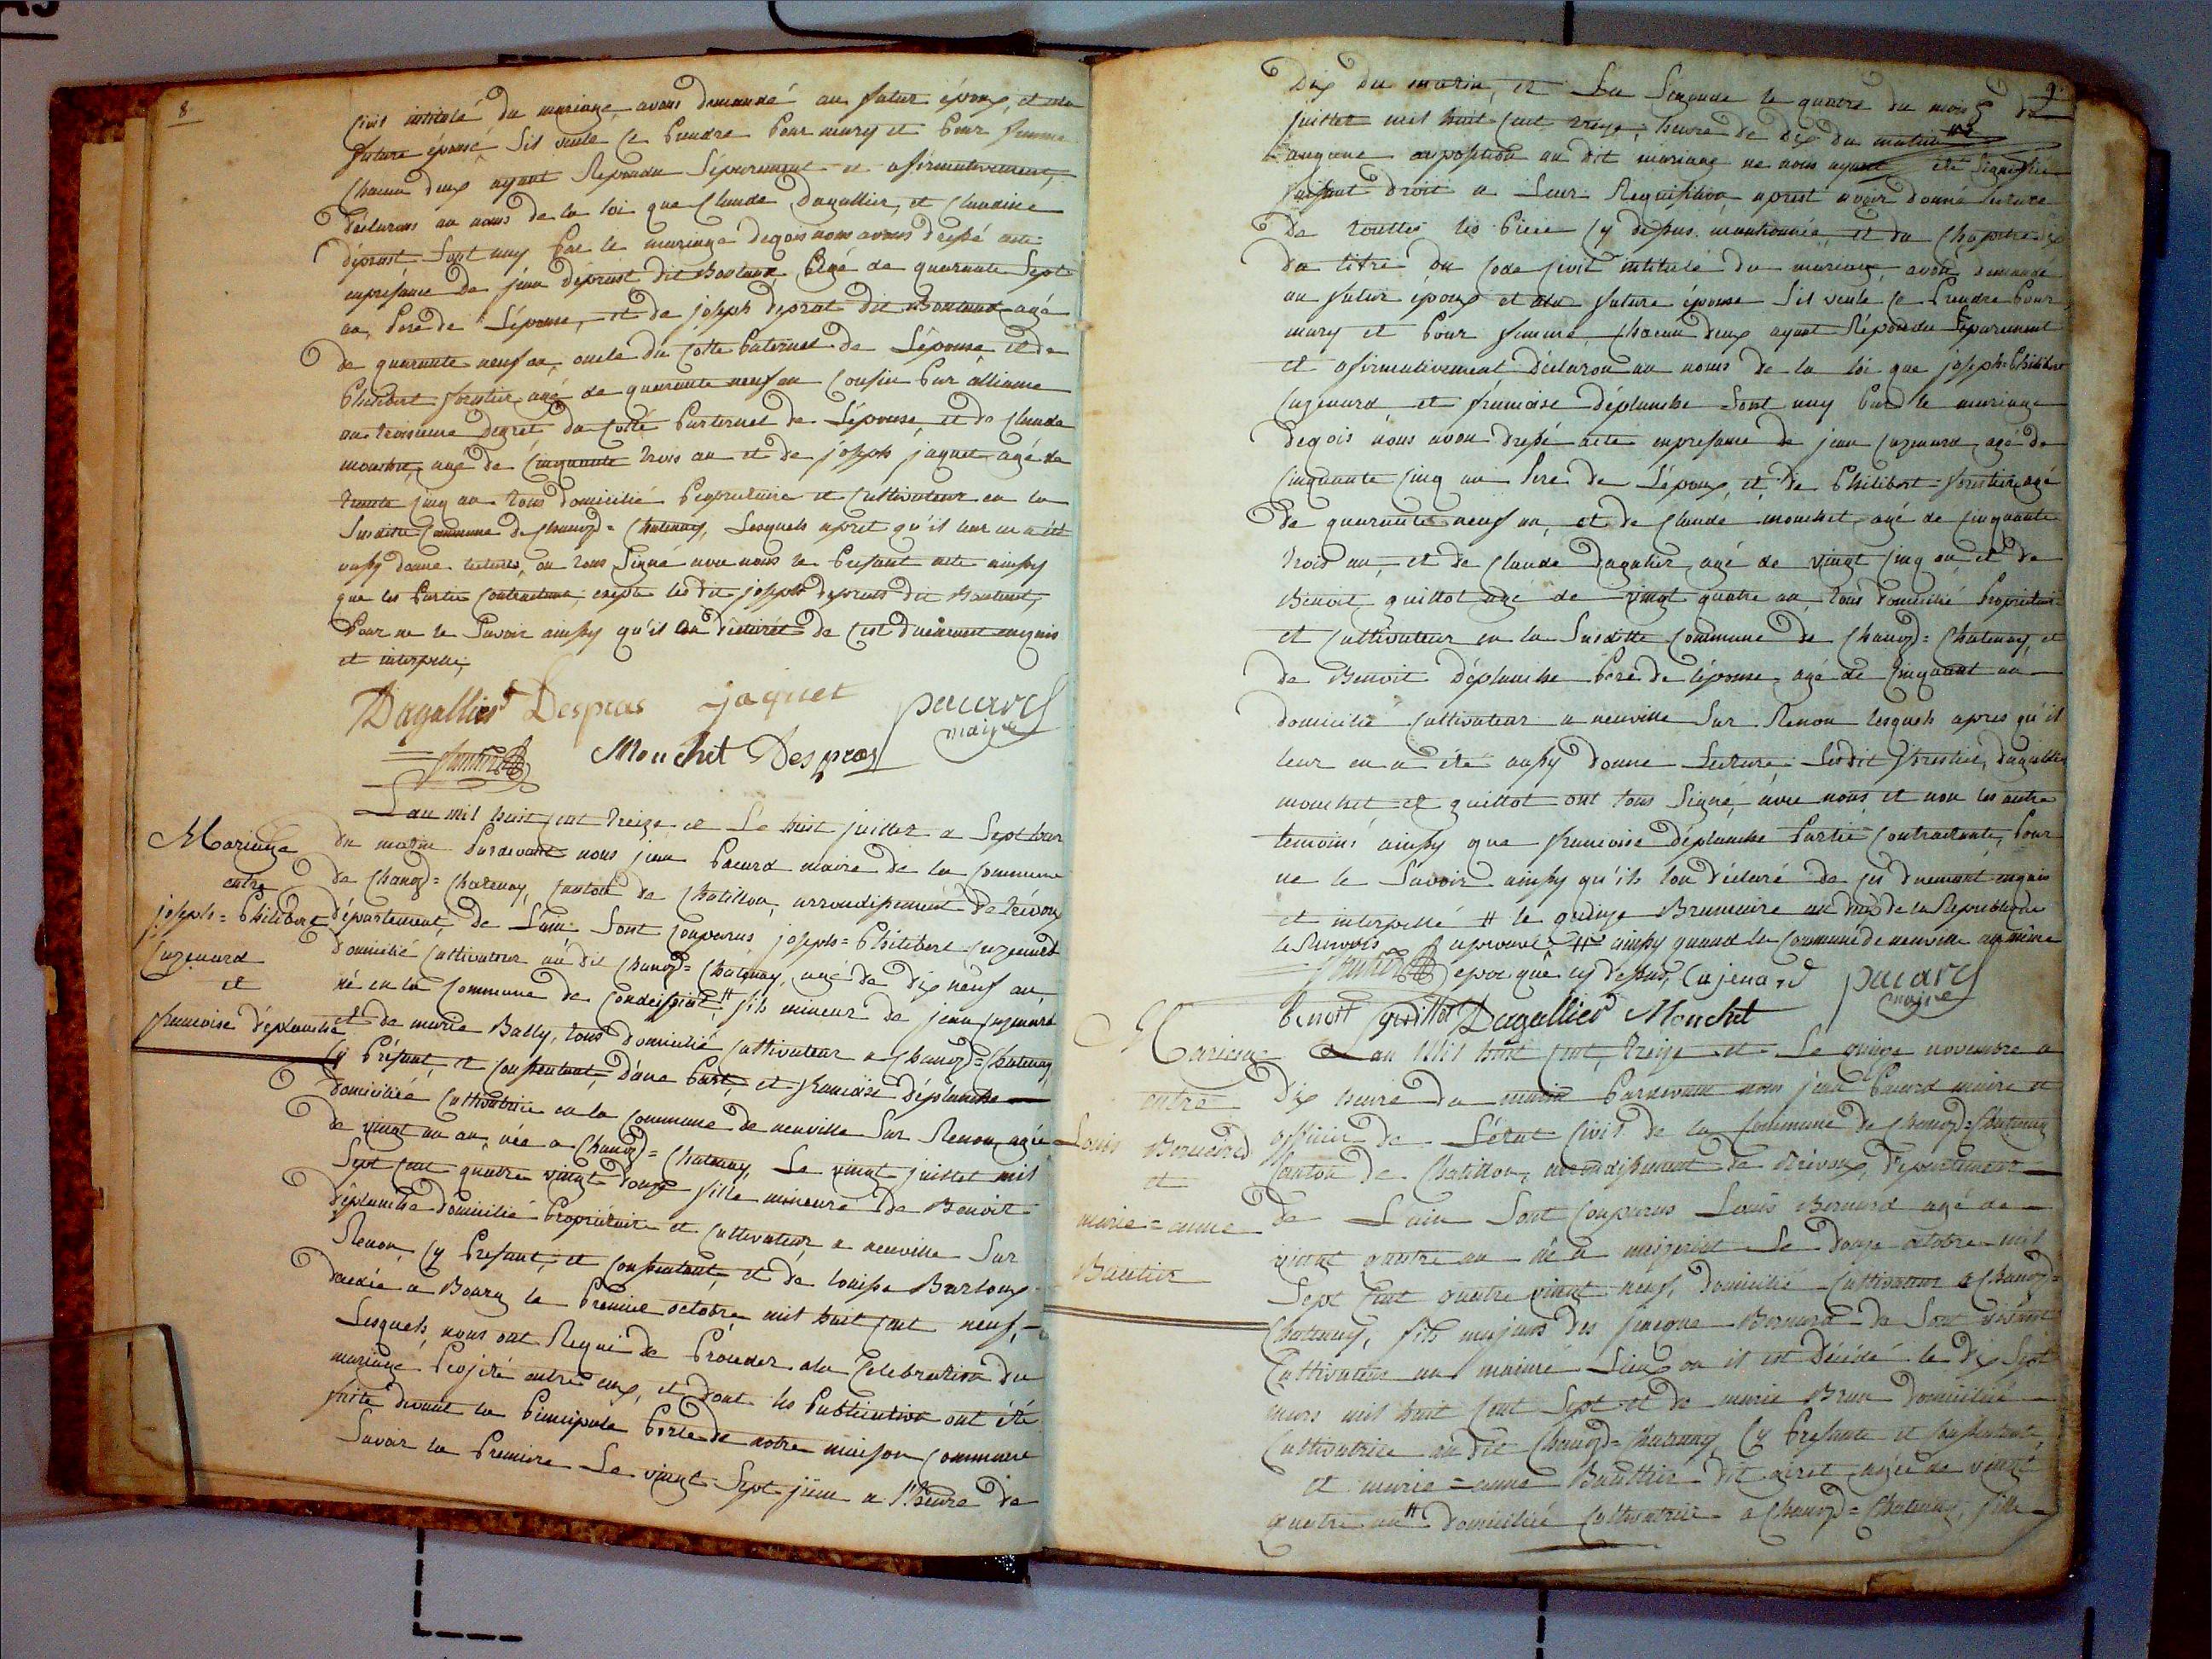 8
Civil intitulé du mariage, avons demandé au futur époux, et ala
future épouse, Sil veule ce Prendre Pour mary et Pour femme
chacun deux ayant Repondu Séparement et afirmativement,
déclarons au noms de la loi que Claude Dagallier, et Claudine
déprast Sont uny Par le mariage deqois nous avons dressé acte
enpresance de jean déprast dit Bontand, Pagé de quarante Sept
an, Pere de L'épouse, et de joseph deprat dit Bontand agé
de quarante neuf an, oncle du Cotté Paternel de L'épouse, et de
Philibert forestier agé de quarante neuf an Cousin Par alliance
au troisieme degret du Cotté Paternel de L'épouse, et de Claude
mouchet, agé de Cinquante trois an et de joseph jaquet agé de
trente Cinq an tous domicilié Propriétaire et Cultivateur en la
Susditte Commune de Chanoz=Chatenay, Lesquels apret qu'il leur en a été
aussy donné lecture, on tous Signé avec nous le Présant acte ainssy
que les Partie Contractante, exepté les dit joseph deprast dit Bontand,
Pour ne le Savoir ainssy qu'il on déclaré de Cest duement enquis
et interpellé,
Dagallier Despras jaquet pacard
maire
forestier Mouchet Despras
Mariage
entre
joseph=Philibert
Cujenard
et
francoise déplanche
L'an mil huit Cent treize et Le huit juillet a Sept heur
du matin Pardevant nous jean Pacard maire de la Commune
de Chanoz=Chatenay, Canton de Chatillon, arrondissement de trévoux
département de L'ain Sont Comparus joseph=Philibert Cujenard
domicilié Cultivateur au dit Chanoz=Chatenay, agé de dix neuf an,
né en la Commune de Condeissiat, # fils mineur de jean Cujenard
et de marie Bally, tous domicilié Cultivateur a Chanoz=Chatenay,
Cy Présant, et Consentant, d'une Part, et francoise déplanche
domiciliée Cultivatrice en la Commune de neuville Sur Renon, agée
de vingt un an, née a Chanoz=Chatenay, Le vingt juillet mil
Sept Cent quatre vingt douze fille mineure de Benoit
déplanche domicilié Propriétaire et Cultivateur a neuville Sur
Renon, Cy Présant, et Consentant, et de louise Barloup
décédée a Bourg le Premier octobre mil huit Cent neuf,
Lesquels nous ont Requi de Procéder ala Celebration du
mariage Projeté entre eux, et dont les Publication ont été
faite devant la Principale Porte de notre maison Commune
Savoir la Premiere Le vingt Sept juin a l'heure de
9
Dix du matin, et La Seconde le quatre du mois de
juillet mil huit Cent treize, heure de dix du matin
aucune oposition au dit mariage ne nous ayant été Signifiée
faisant droit a Leur Requisition, aprest avoir donné lecture
de touttes les Piece Cy dessus mentionnée, et du Chapitre Six
du titre du Code Civil intitulé du mariage, avons demandé
au futur époux et ala future épouse Sil veule ce Prendre Pour
mary et Pour femme, Chacun deux ayant Répondu Séparement
et afirmativement déclaron au noms de la loi que joseph=Philibert
Cujenard et francoise déplanche Sont uny Par le mariage
deqois nous avon dressé acte enpresance de jean Cujenard, agé de
Cinquante Cinq an Pere de L'époux, et, de Philibert forestier agé
de quarante neuf an, et de Claude mouchet, agé de Cinquante
trois an, et de Claude Dagalier, agé de vingt Cinq an, et de
Benoit guillot agé de vingt quatre an, tous domicilié Propriétaire
et Cultivateur en la Susditte Commune de Chanoz=Chatenay, et
de Benoit déplanche Pere de lépouse, agé de Cinquant an
domicilié Cultivateur a neuville Sur Renon lesquels apres qu'il
leur en a été aussy donné Lecture, Lesdit forestier, Dagallier
mouchet et guillot ont tous Signé, avec nous et non les autre
temoins ainssy que francoise déplanche Partie Contractante, Pour
ne le Savoir ainssy qu'ils l'on déclaré de ces duement enquis
et interpellé # le quinze Brumaire an de la République
le Renvois aprouvé # ainssy quand la Commune de neuville au même
forestier epoc que cy dessus, Cujenard pacard
maire
Benoit Guillot Dagallier Mouchet
Mariage
entre
Louis Bernard
et
marie=anne
Bautier
L'an Mil huit Cent, treize et Le quinze novembre a
Dix heure du matin Pardevant nous jean Pacard maire et
officier de L'état Civil de la Commune de Chanoz=Chatenay
Canton de Chatillon, arrondissement de trévoux, département
de L'ain Sont Comparus Louis Bernard agé de
vingt quatre an né a mezeriat Le douze octobre mil
Sept Cent quatre vingt neuf, domicilié Cultivateur a Chanoz=
Chatenay, fils majeur des jacque Bernard de Sont vivant
Cultivateur au même Lieux ou il est Décédé le dix Sept
mars mil huit Cent Sept et de marie Brun domiciliée
Cultivatrice au dit Chanoz=Chatenay, Cy Présente et Consentant,
et marie=anne Bautier dit agée de vingt
quatre an # domiciliée Cultivatrice a Chanoz=Chatenay, fille